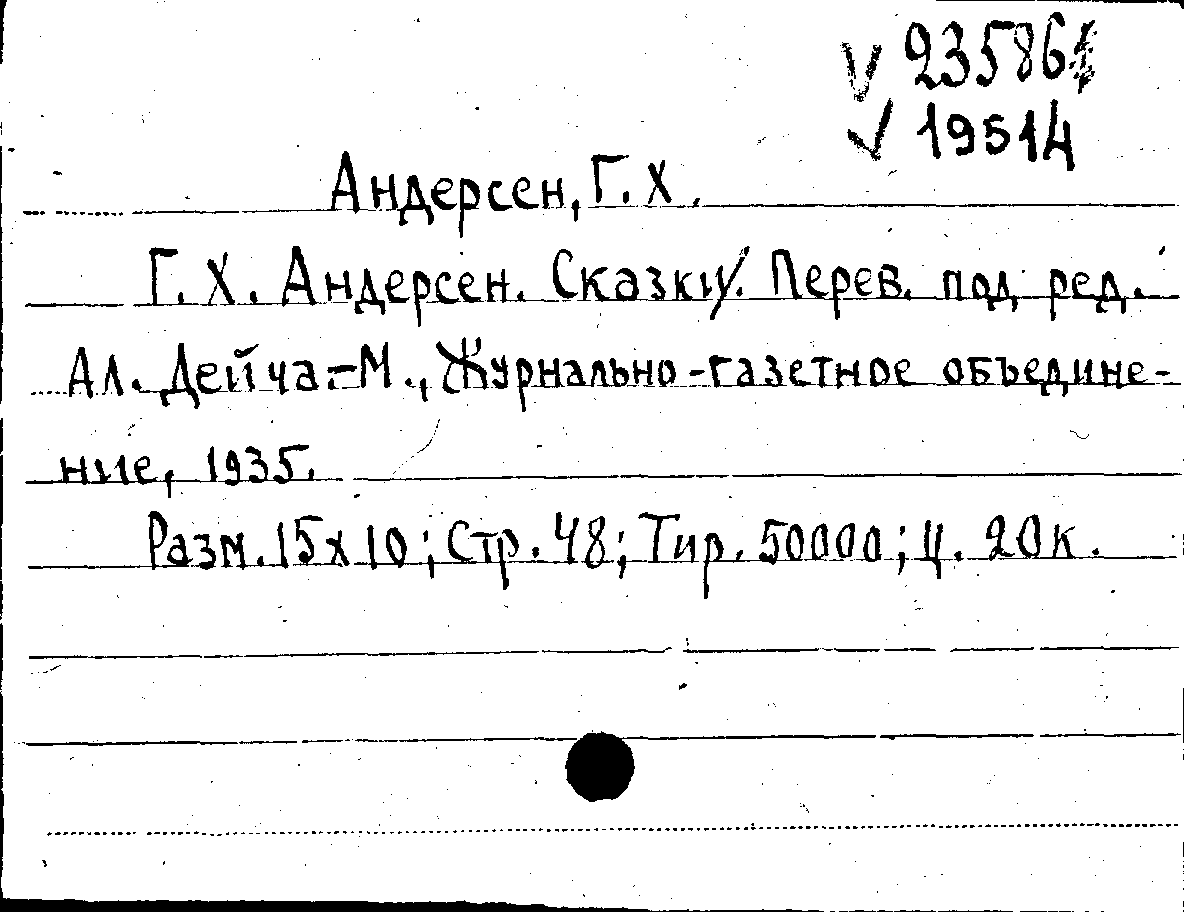 V 23586
√ 19514
Андерсен, Г. Х.
Г. Х. Андерсен. Сказки. Перев. под ред.
Ал. Дейча.-М., Журнально-газетное объедине-
ние, 1935.
Разм. 15х10; Стр. 48; Тир. 50000; Ц. 20к.